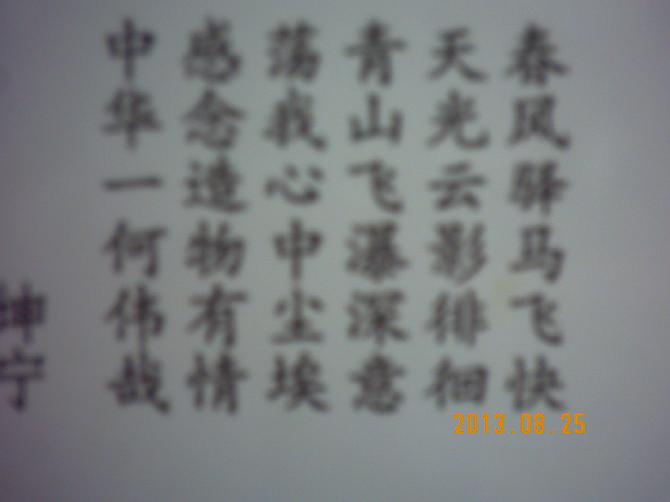 春风驿马飞快
天光云影徘徊
青山飞瀑深意
荡我心中尘埃
感念造物有情
中华一何伟哉
坤宁
2013.08.25